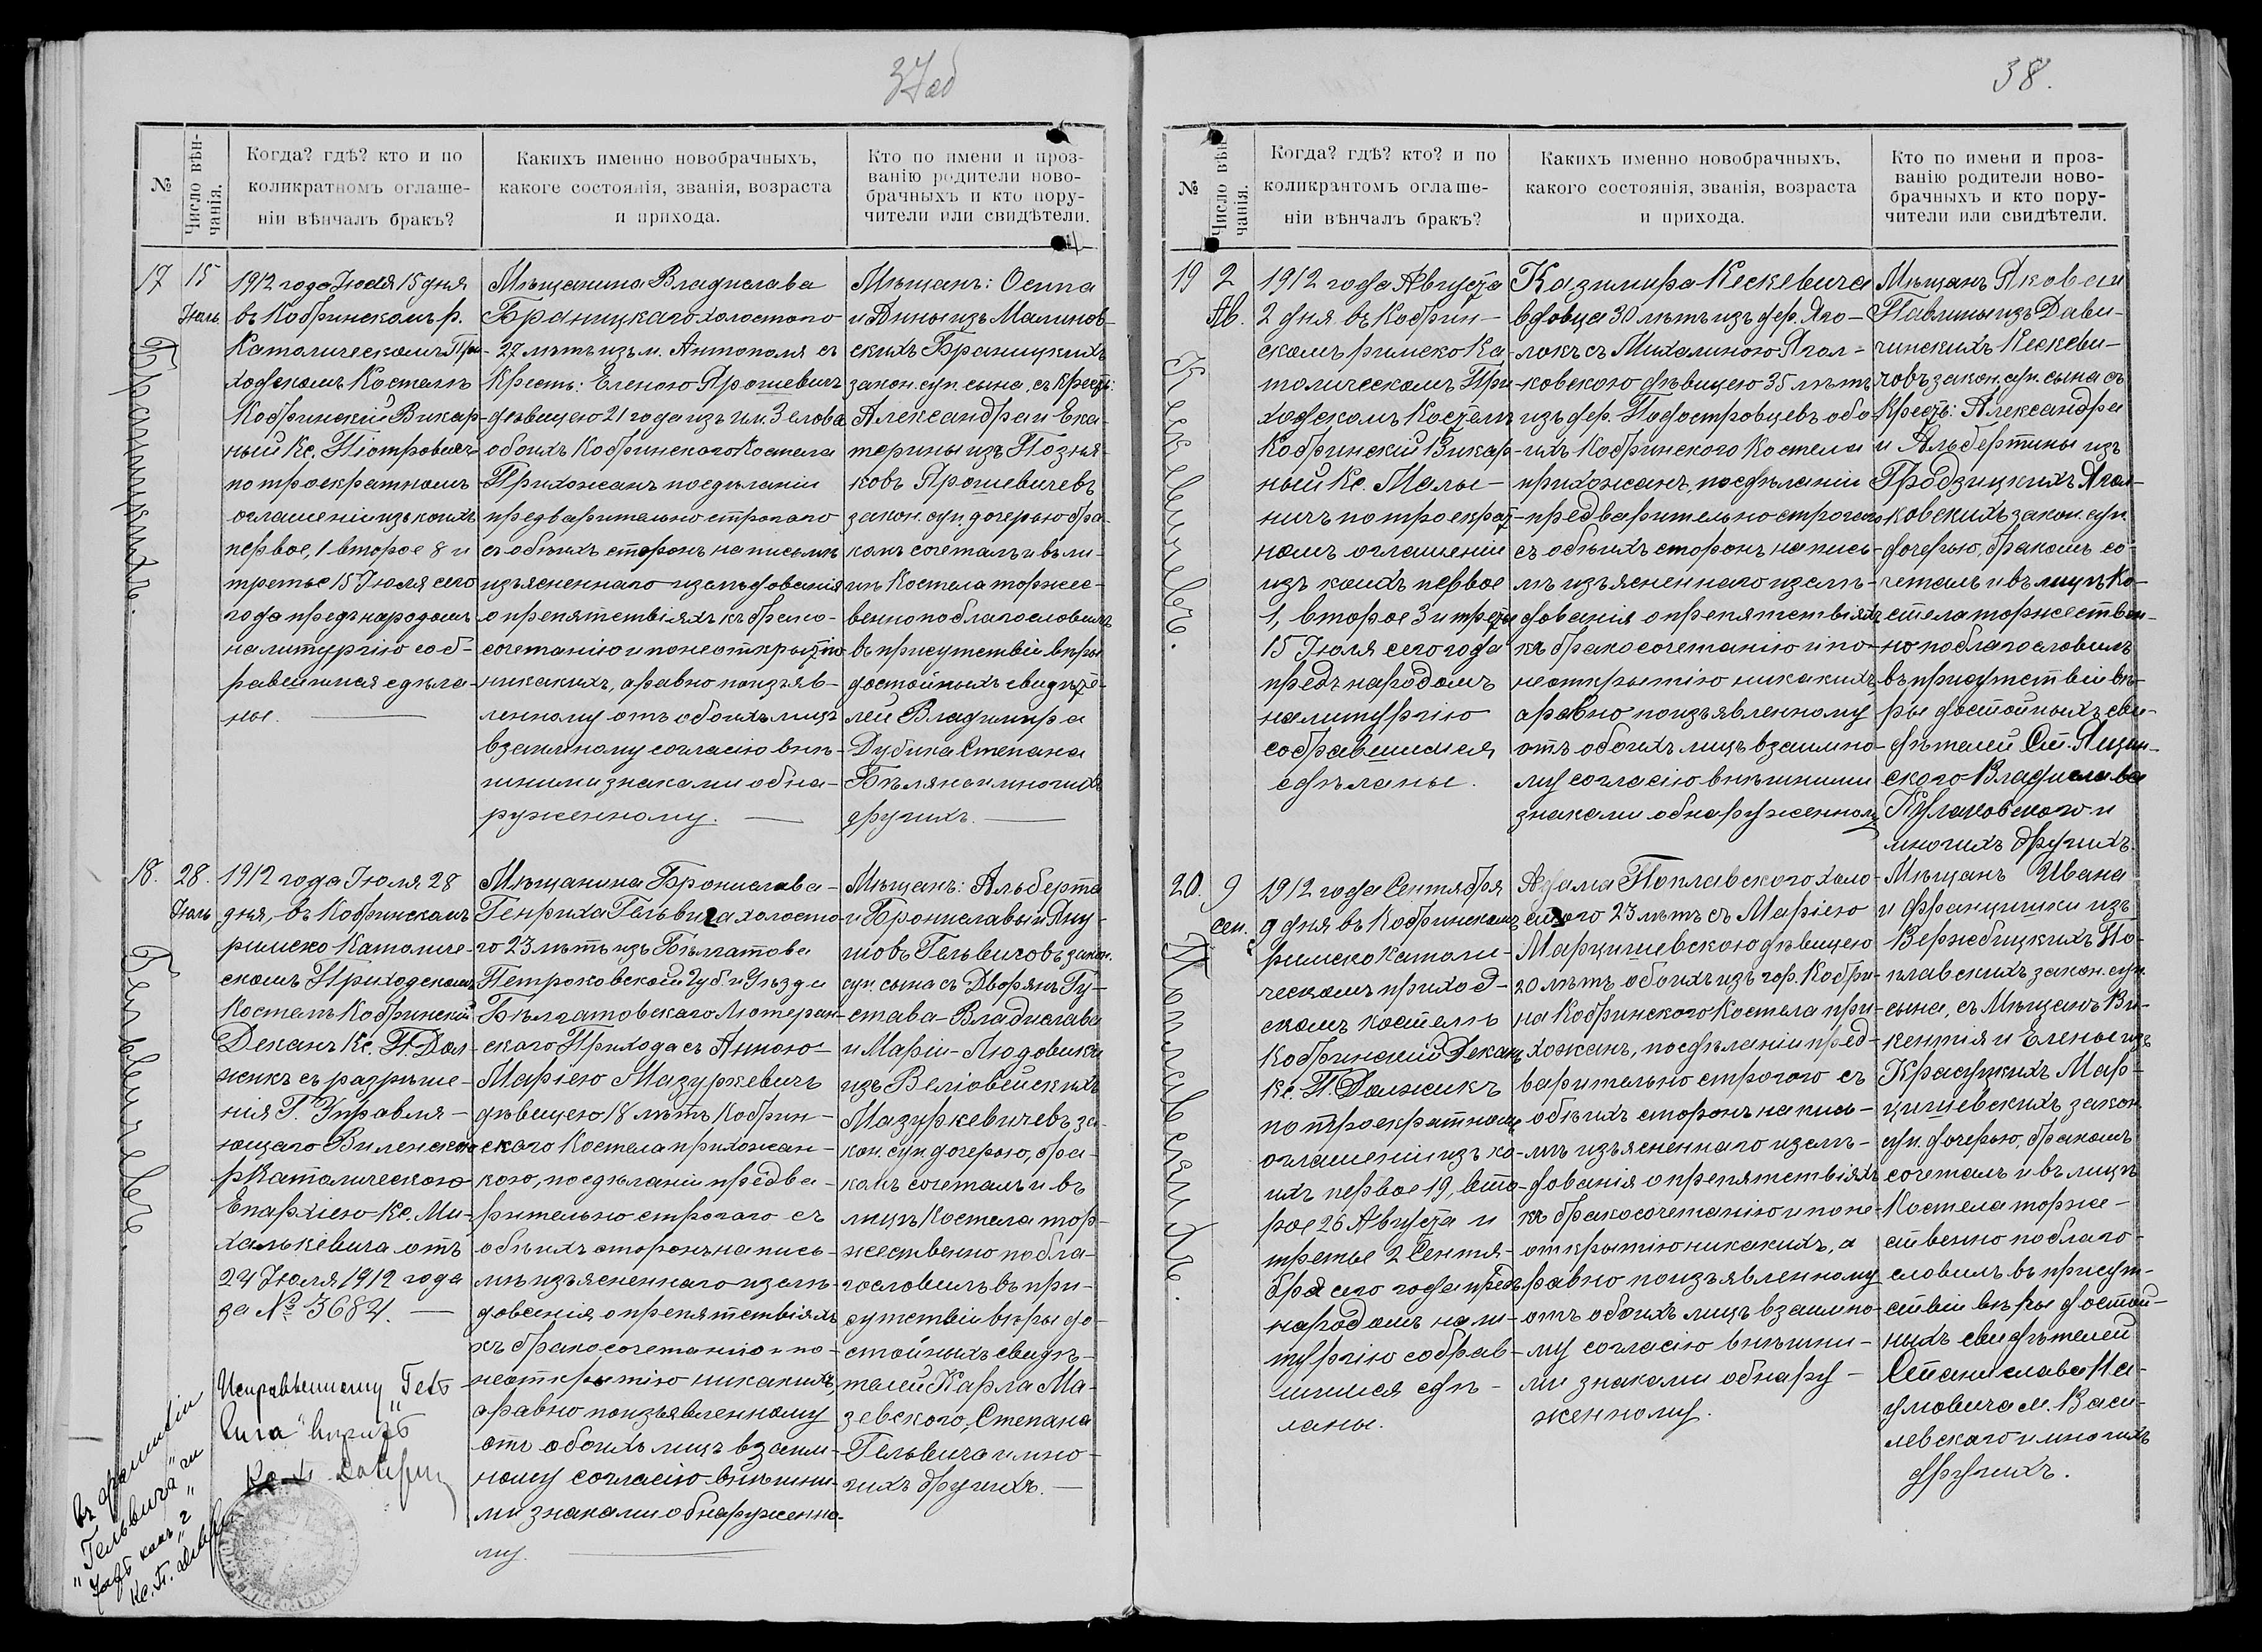 37об
№
Число вѣн-
чанія.
Когда? гдѣ? кто и по
коликратномъ оглаше-
ніи вѣнчалъ бракъ?
Какихъ именно новобрачныхъ,
какого состоянія, званія, возраста
и прихода.
Кто по имени и проз-
ванію родители ново-
брачныхъ и кто пору-
чители или свидѣтели.
17
15
Іюль.
Браницкихъ.
1912 года Іюля 15 дня
въ Кобринскомъ р.
Католическомъ При-
ходскомъ Костелѣ
Кобринскій Викар-
ный Кс. Піотровичъ
по троекратномъ
оглашеніи изъ коихъ
первое, 1 второе 8 и
третье 15 Іюля сего
года предъ народомъ
на литургію соб-
равшимся сдѣла-
ны.
Мѣщанина Владислава
Браницкаго холостого
27 лѣтъ изъ м. Антополя съ
Крест: Еленою Ярошевичъ
дѣвицею 21 года изъ им. Зелова
обоихъ Кобринского Костела
Прихожанъ по сдѣланіи
предварительно строгого
съ обѣихъ сторонъ на письмѣ
изъясненнаго изслѣдованія
о препятствіяхъ къ брако-
сочетанію и по неоткрытію
никакихъ, а равно по изъяв-
ленному отъ обоихъ лицъ
взаимному согласію внѣ-
шними знаками обна-
руженному.
Мѣщанъ: Осипа
и Анны изъ Малинов-
скихъ Браницкихъ
закон. суп. сына, съ Крест:
Александра и Ека-
терины изъ Позня-
ковъ Ярошевичевъ
закон. суп. дочерью бра-
комъ сочеталъ и въ ли-
цѣ Костела торжес-
венно поблагословилъ
въ присутствіи вѣры
достойныхъ свидѣте-
лей Владимира
Дубика Степана
Бѣляка и многихъ
другихъ.
18.
28.
Іюль
Гельвичевъ.
1912 года Іюля 28
дня, въ Кобринскомъ
римско Католиче-
скомъ Приходскомъ
Костелѣ Кобринскій
Деканъ Кс. П. Дол-
жикъ съ разрѣше-
нія Г. Управля-
ющаго Виленскою
рКатолическою
Епархіею Кс. Ми-
халькевича отъ
24 Іюля 1912 года
за № 3684.
Мѣщанина Бронислава-
Генриха Гельвига холосто-
го 23 лѣтъ изъ Бѣлхатова
Петроковской Губ. и Уѣзда
Бѣлхатовскаго Лютеран-
ского Прихода съ Анною-
Маріею Мазуркевичъ
дѣвицею 18 лѣтъ Кобрин-
ского Костела прихожан-
кою, по сдѣланіи предва-
рительно строгого съ
обѣихъ сторонъ на пись-
мѣ изъясненнаго изслѣ-
дованія о препятствіяхъ
къ бракосочетанію и по
неоткрытію никакихъ,
а равно по изъявленному
отъ обоихъ лицъ взаим-
ному согласію внѣшни-
ми знаками обнаруженно-
му.
Мѣщанъ: Альберта
и Брониславы и Яну-
шовъ Гельвиговъ закон.
суп. сына съ Дворянъ Гу-
става-Владислава
и Маріи-Людовики
изъ Веліовейскихъ
Мазуркевичевъ за-
кон. суп. дочерью, бра-
комъ сочеталъ и въ
лицѣ Костела тор-
жественно побла-
гословилъ въ при-
сутствіи вѣры до-
стойныхъ свидѣ-
телей Карла Ма-
зевского, Степана
Гельвича и мно-
гихъ другихъ.
Исправленному „Гель-
вига“ вѣрить
въ фамиліи
„Гельвича“
38.
№
Число вѣн-
чанія.
Когда? гдѣ? кто? и по
коликрантомъ оглаше-
ніи вѣнчалъ бракъ?
Какихъ именно новобрачныхъ,
какого состоянія, званія, возраста
и прихода.
Кто по имени и проз-
ванію родители ново-
брачныхъ и кто пору-
чители или свидѣтели.
19
2
Ав.
Кескевичевъ.
1912 года Августа
2 дня въ Кобрин-
скомъ римско Ка-
толическомъ При-
ходскомъ Костелѣ
Кобринскій Викар-
ный Кс. Малы-
ничъ по троекрат-
номъ оглашеніи
изъ коихъ первое
1, второе 3 и третье
15 Іюля сего года
предъ народомъ
на литургію
собравшимся
сдѣланы.
Казимира Кескевича
вдовца 30 лѣтъ изъ дер. Яго-
локъ съ Михалиною Ягол-
ковскою дѣвицею 35 лѣтъ
изъ дер. Подостровцевъ обо-
ихъ Кобринского Костела
прихожанъ, по сдѣланіи
предварительно строгого
съ обѣихъ сторонъ на пись-
мѣ изъясненнаго изслѣ-
дованія о препятствіяхъ
къ бракосочетанію и по
неоткрытію никакихъ,
а равно по изъявленному
отъ обоихъ лицъ взаимно-
му согласію внѣшними
знаками обнаруженному
Мѣщанъ Якова и
Павлины изъ Дави-
чинскихъ Кескеви-
човъ закон. суп. сына съ
Крест: Александра
и Альбертины изъ
Гродзицкихъ Ягол-
ковскихъ закон. суп.
дочерью, бракомъ со-
четалъ и въ лицѣ Ко-
стела торжествен-
но поблагословилъ
въ присутствіи вѣ-
ры достойныхъ сви-
дѣтелей Ст. Яцын-
ского Владислава
Кулаковского и
многихъ другихъ.
20.
9
сен.
Поплавскихъ.
1912 года Сентября
9 дня въ Кобринскомъ
римско Католи-
ческомъ приход-
скомъ костелѣ
Кобринскій Деканъ
Кс. П. Должикъ
по троекратномъ
оглашеніи изъ ко-
ихъ первое 19, вто-
рое 26 Августа и
третье 2 Сентя-
бря сего года предъ
народомъ на ли-
тургію собрав-
шимся сдѣ-
ланы.
Адама Поплавского холо-
стого 23 лѣтъ съ Маріею
Марцишевскою дѣвицею
20 лѣтъ обоихъ изъ гор. Кобри-
на Кобринского Костела при-
хожанъ, по сдѣланіи пред-
варительно строгого съ
обѣихъ сторонъ на пись-
мѣ изъясненнаго изслѣ-
дованія о препятствіяхъ
къ бракосочетанію и по не-
открытію никакихъ, а
равно по изъявленному
отъ обоихъ лицъ взаимно-
му согласію внѣшни-
ми знаками обнару-
женному.
Мѣщанъ Ивана
и Францишки изъ
Вержбицкихъ По-
плавскихъ закон. суп.
сына, съ Мѣщанъ Ви-
кентія и Елены изъ
Красуцкихъ Мар-
цишевскихъ закон.
суп. дочерью, бракомъ
сочеталъ и въ лицѣ
Костела торже-
ственно поблаго-
словилъ въ присут-
ствіи вѣры достой-
ныхъ свидѣтелей
Станислава На-
умовича М. Васи-
левского и многихъ
другихъ.